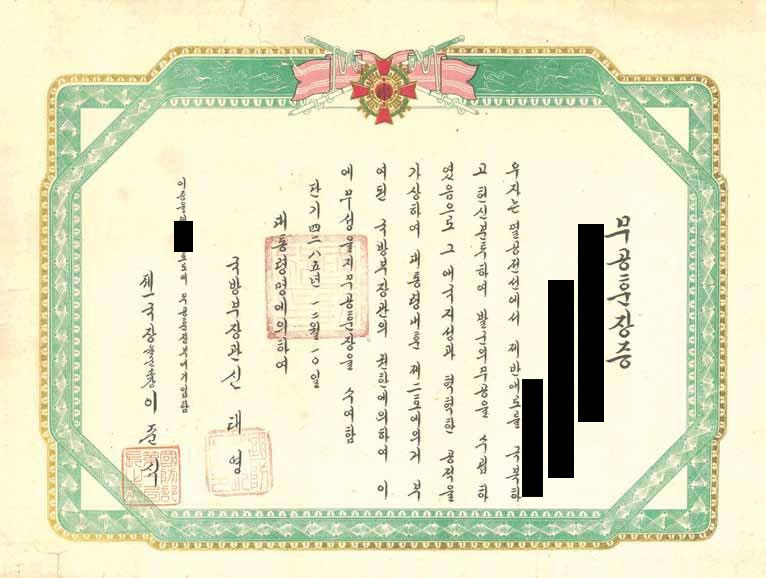 무공훈장증
우자는 멸공전선에서 제반애로를 극복하
고 헌신분투하여 발군의무공을 수립하
였음으로 그 애국지성과 혁혁한 공적을
가상하여 대통령내훈 제二호에의거 부
여된 국방부장관의 권한에의하여 이
에 무성을지무공훈장을 수여함
단기四二八五년 一二월一〇일
대통령명에의하여
국방부장관 신태영
이증을 호로써 무공훈장부에기입함
제一국장 이준식
國防部第一局長之印